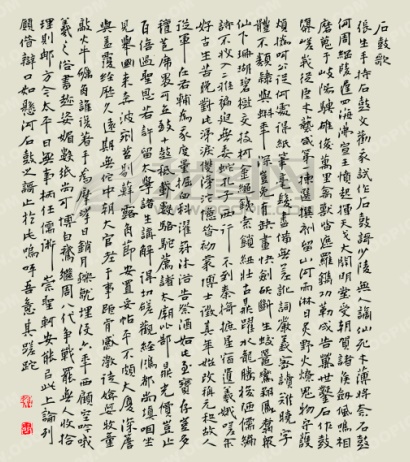 石鼓歌
張生手持石鼓文勸我試作石鼓歌少陵無人謫仙死才薄將奈石鼓
何周綱陵遲四海沸宣王憤起揮天戈大開明堂受朝賀諸侯劍佩鳴相
磨蒐于岐陽騁雄俊萬里禽獸皆遮羅鐫功勒成告萬世鑿石作鼓
隳嵯峨從臣才藝咸第一揀選撰刻留山阿雨淋日炙野火燎鬼物守護
煩撝呵公從何處得紙本毫髮盡備無差訛詞嚴義密讀難曉字
體不類隸與蝌年深豈免有缺畫快劍斫斷生蛟鼉鸞翔鳳翥衆
仙下珊瑚碧樹交枝柯金繩鐵索鎖紐壯古鼎躍水龍騰梭陋儒編
詩不收入二雅褊迫無委蛇孔子西行不到秦掎摭星宿遺羲娥嗟余
好古生苦晚對此涕淚雙滂沱憶昔初蒙博士徵其年始改稱元和故人
從軍在右輔為我度量掘臼科濯冠沐浴告祭酒如此至寶存豈多
氈包席裹可立致十鼓祇載數駱駝薦諸太廟比郜鼎光價豈止
百倍過聖恩若許留太學諸生講解得切磋觀經鴻都尚填咽坐
見舉國來奔波剜苔剔蘚露節角安置妥帖平不頗大廈深簷
與蓋覆經歷久遠期無佗中朝大官老於事詎肯感激徒媕婀牧童
敲火牛礪角誰復著手為摩挲日銷月鑠就埋沒六年西顧空吟哦
羲之俗書趁姿媚數紙尚可博白鵝繼周八代爭戰罷無人收拾
理則那方今太平日無事柄任儒術崇丘軻安能以此上論列
願借辯口如懸河石鼓之歌止於此嗚呼吾意其蹉跎